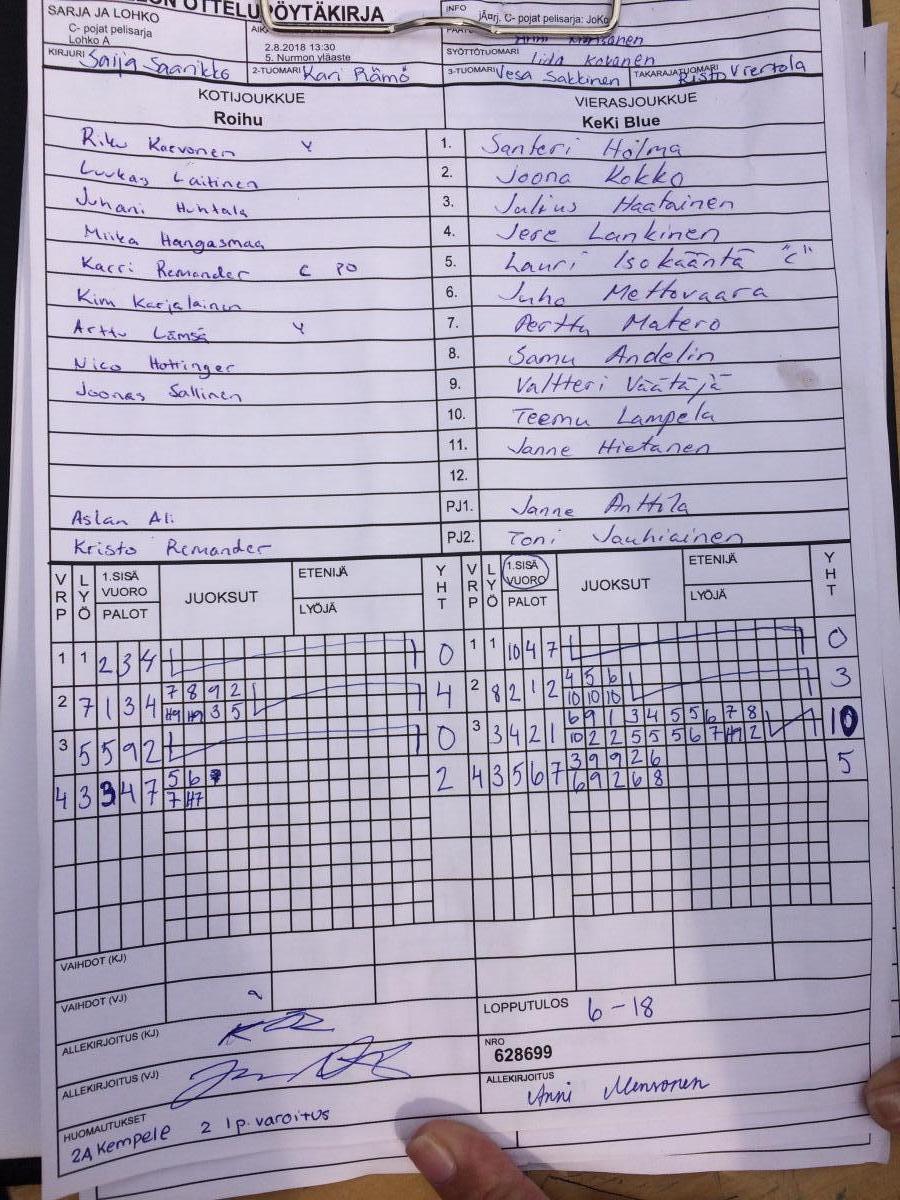 OTTELUPÖYTÄKIRJA
INFO
jÄ¤rj. C- pojat pelisarja: JoKo
SARJA JA LOHKO
C- pojat pelisarja
Lohko A
2.8.2018 13:30
5. Nurmon yläaste
SYÖTTÖTUOMARI Iida Kovanen
KIRJURI Saija Saarikko
2-TUOMARI Kari Rämö
3-TUOMARI Vesa Sakkinen
TAKARAJATUOMARI Risto Viertola
KOTIJOUKKUE
Roihu
VIERASJOUKKUE
KeKi Blue
Riku Korvonen Y 1. Santeri Holma
Luukas Laitinen 2. Joona Kokko
Juhani Huhtala 3. Julius Haatainen
Miika Hangasmaa 4. Jere Lankinen
Karri Remander C PO 5. Lauri Isokääntä "C"
Kim Karjalainen 6. Juho Mettovaara
Arttu Lämsä Y 7. Perttu Matero
Nico Hottinger 8. Samu Andelin
Joonas Sallinen 9. Valtteri Väätäjä
10. Teemu Lampela
11. Janne Hietanen
12.
Aslan Ali PJ1. Janne Anttila
Kristo Remander PJ2. Toni Vauhiainen
VRP LYÖ 1.SISÄ VUORO PALOT JUOKSUT ETENIJÄ LYÖJÄ YHT VRP LYÖ 1.SISÄ VUORO PALOT JUOKSUT ETENIJÄ LYÖJÄ YHT
1 1 2 3 4 0 1 1 10 4 7 0
2 7 1 3 4 7 8 9 2 4 2 8 2 1 2 4 5 6 3
H9 H9 3 5 10 10 10
3 5 5 9 2 0 3 3 4 2 1 6 9 1 3 4 5 5 6 7 8 10
10 2 2 5 5 5 6 7 H9 2
4 3 3 4 7 5 6 2 4 3 5 6 7 3 9 9 2 6 5
7 H7 6 9 2 6 8
VAIHDOT (KJ)
VAIHDOT (VJ)
LOPPUTULOS 6-18
ALLEKIRJOITUS (KJ)
NRO
628699
ALLEKIRJOITUS (VJ)
ALLEKIRJOITUS Anni Mensonen
HUOMAUTUKSET
2A Kempele 2 lp. varoitus